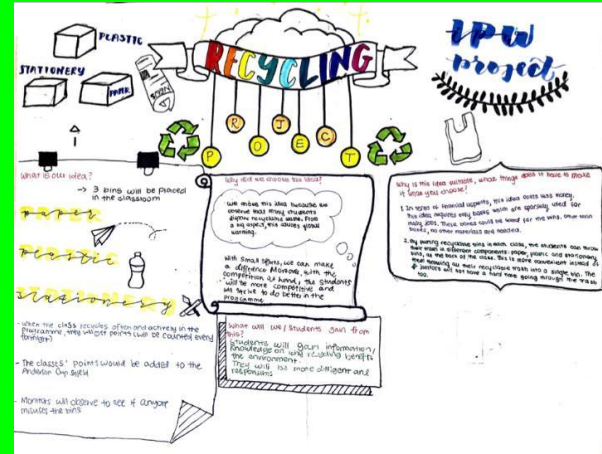 PLASTIC
STATIONERY
PAPER
RECYCLING
PROJECT
IPW
project
What is our idea?
→ 3 bins will be placed
in the classroom
paper
plastic
stationery
- When the class recycles often and actively in the
programme, they will get points (will be counted every
fortnight)
- The classes' points would be added to the
Anderson Cup
- Monitors will observe to see if anyone
misuses the bins
Why did we choose this idea?
We choose this idea because we
observe that many students
recyclable waste. From
a big aspect, this causes global
warming.
With small efforts, we can make
a difference. Moreover, with the
competition at hand, the students
will be more competitive and
strive to do better in the
programme
What will we/students gain from
this?
Students will gain information/
knowledge on why recycling benefits
the environment.
They will be more diligent and
responsible
Why is this idea suitable, what things does it have to make
it you choose?
1. In terms of financial aspects, this idea costs less money.
This idea requires only boxes which are
many less. These boxes could be used for the bins. Other than
boxes, no other materials are needed.
2. By putting recyclable bins in each class, the students can throw
their trash in different components: paper, plastic and stationery
bins, at the back of the class. This is more convenient instead of
throwing all their recyclable trash into a single bin. The
janitors will not have a hard time going through the trash
too.